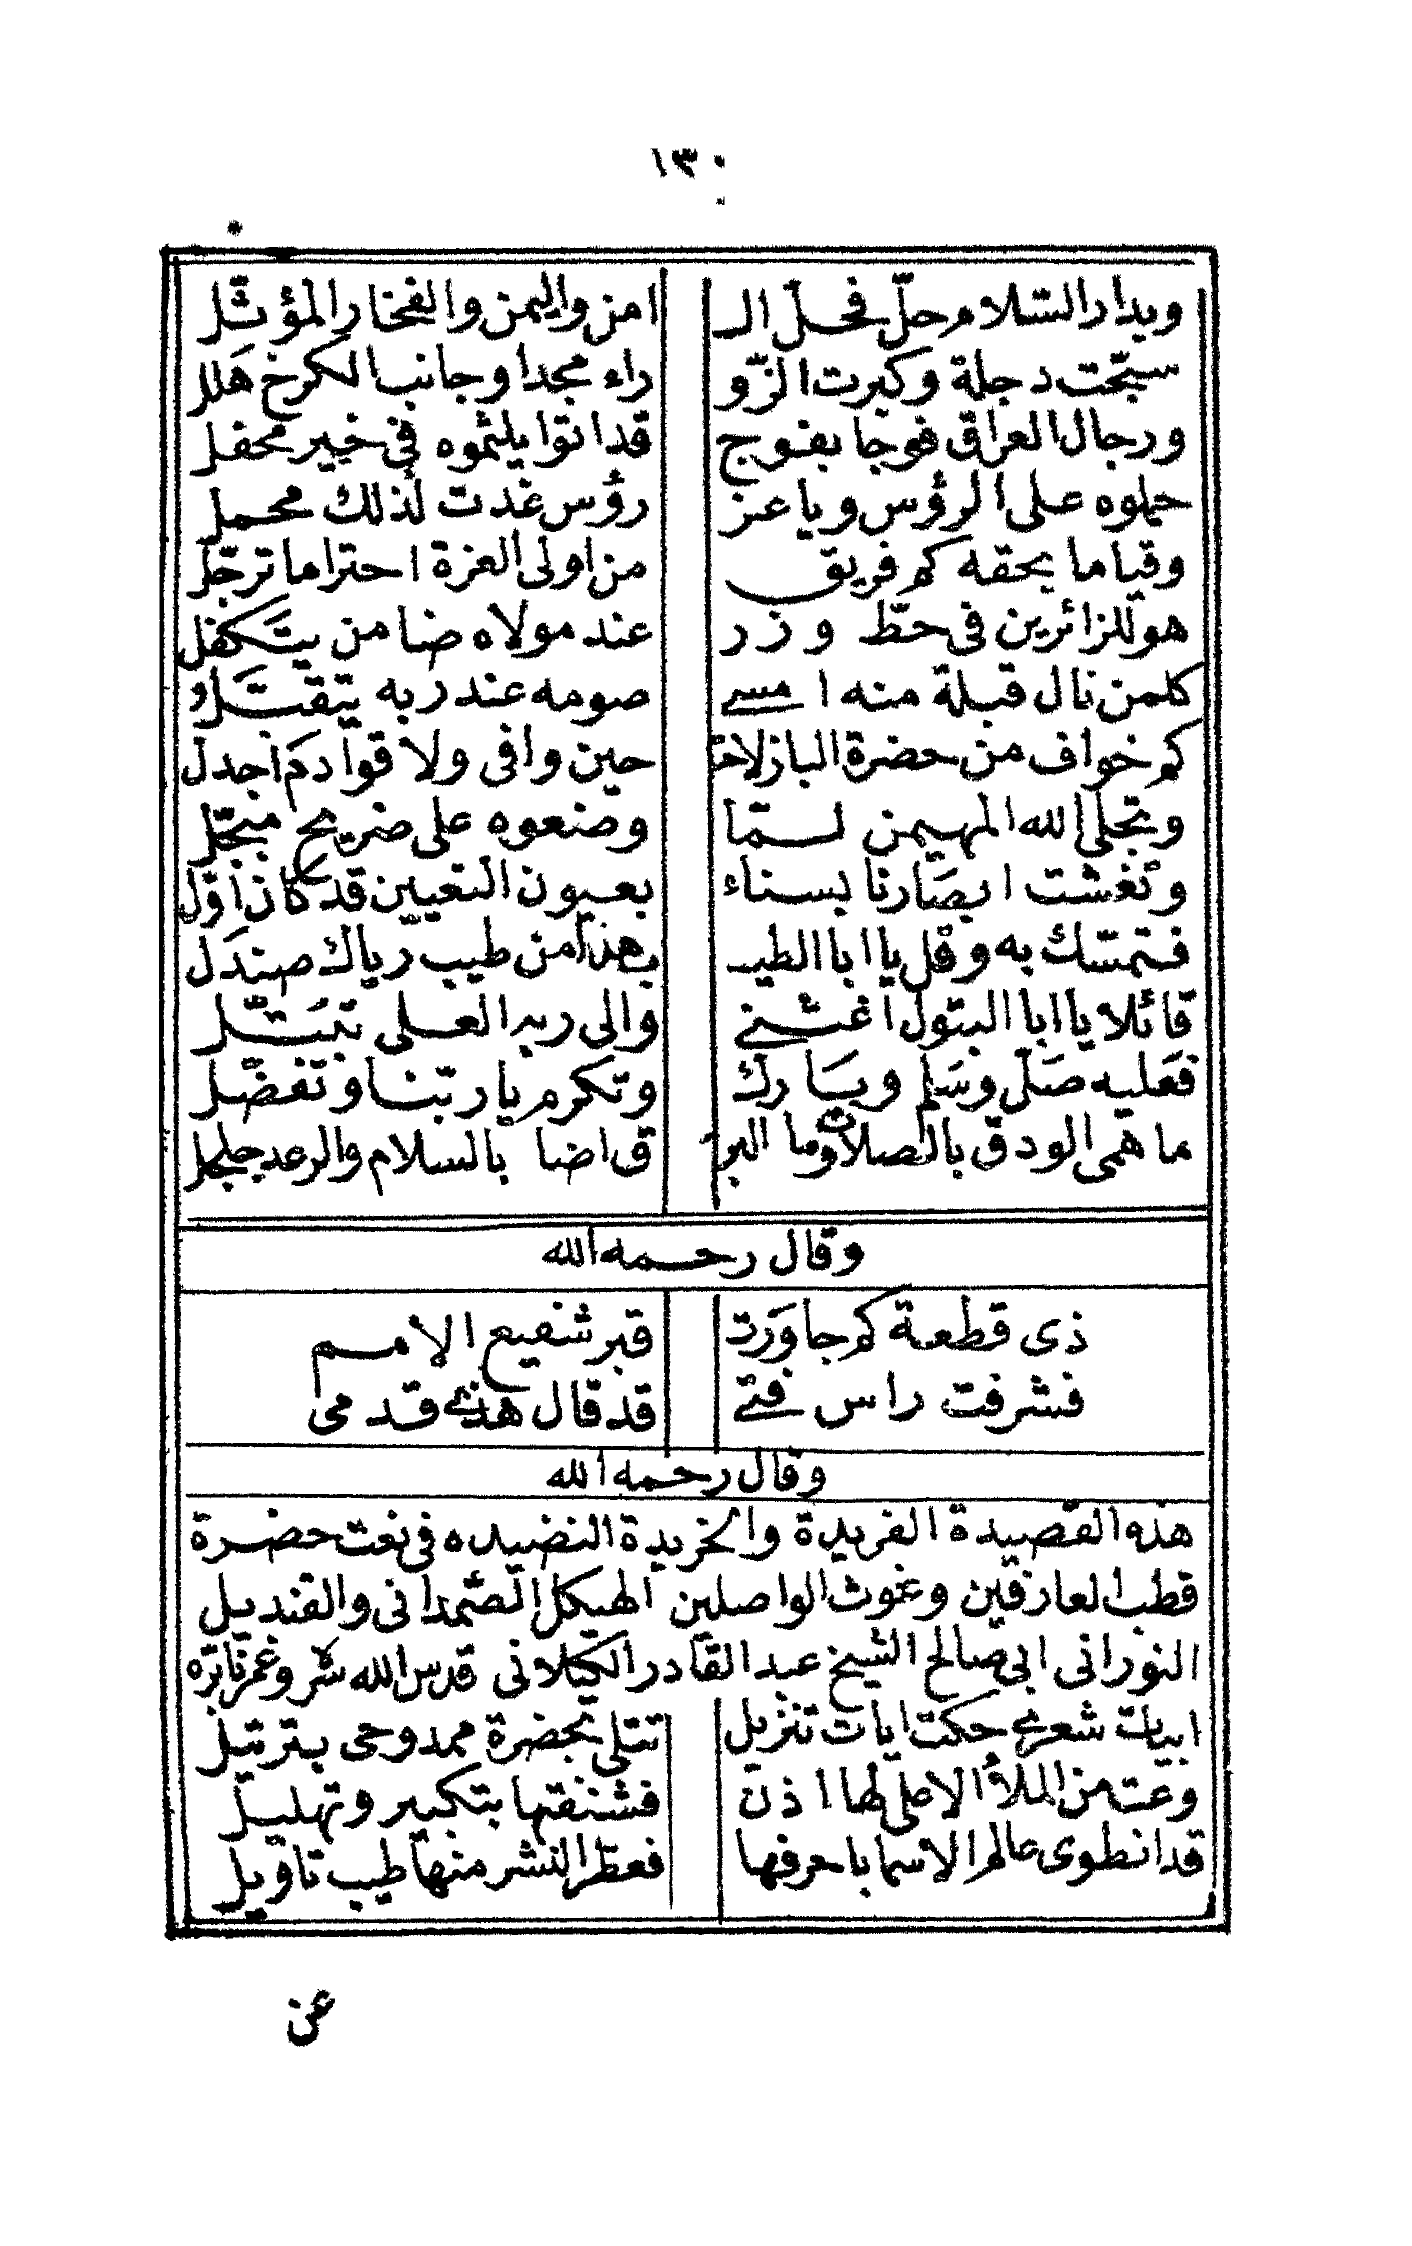 ١٣٠
وبدار السّلام حلّ فحلّ الـ امن واليمن والفخار المؤثّل
سبّحت دجلة وكبرت الزّو راء مجدا وجانب الكرخ هلل
ورجال العراق فوجا بفوج قد اتوا يلثموه فى خير محفل
حملوه على الرؤس ويا عز رؤس غدت لذلك محمل
وقياما بحقه كم فريق من اولى العزة احتراما ترجّل
هو للزائرين فى حطّ وزر عند مولاه ضامن يتكفل
كلمن نال قبلة منه امسى صومه عند ربه يتقبّل
كم خواف من حضرة الباز لاحت حين وافى ولا قوادم اجدل
وتجلى الله المهيمن لـمّا وضعوه على ضريح مبجّل
وتغشت ابصارنا بسناء بعيون التعيين قد كان اوّل
فتمسّك به وقل يا ابا الطيب هذا من طيب ريّاك صندل
قائلا يا ابا البتول اغثنى والى ربه العلى تبتّل
فعليه صلّ وسلم وبارك وتكرم يا ربّنا وتفضّل
ما همى الودق بالصلاة وما البر ق اضا بالسلام والرعد جلجل
وقال رحمه الله
ذى قطعة كم جاورت قبر شفيع الامم
فشرفت راس فتى قد قال هذى قدمى
وقال رحمه الله
هذه القصيدة الفريدة والخريدة النضيده فى نعت حضرة
قطب العارفين وغوث الواصلين الهيكل الصّمدانى والقنديل
النورانى ابى صالح الشيخ عبد القادر الكيلانى قدس الله سره وغمرنا بره
ابيات شعرى حكت ايات تنزيل تتلى بحضرة ممدوحى بترتيل
وعت من الملأ الاعلى لها اذن فشنفتها بتكبير وتهليل
قد انطوى عالم الاسما باحرفها فعطر النشر منها طيب تاويل
عن